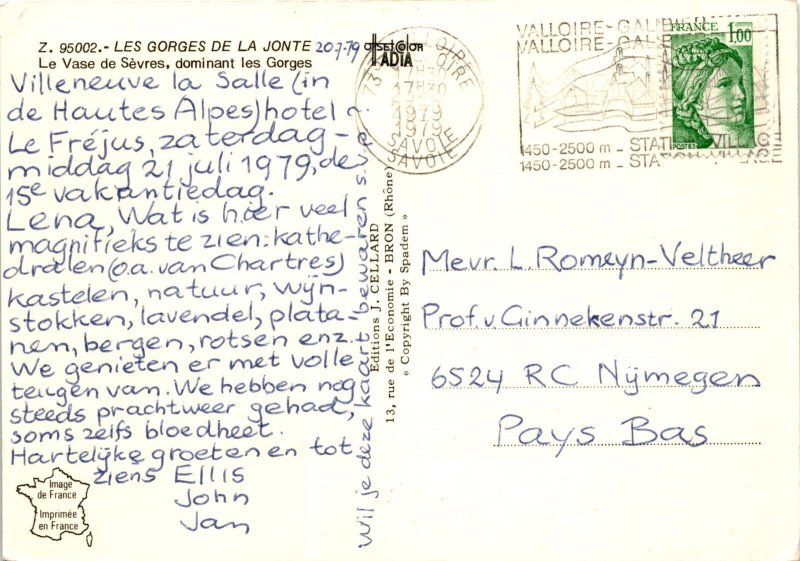 Z. 95002.- LES GORGES DE LA JONTE
Le Vase de Sèvres, dominant les Gorges
20-7-79
OFFSET COLOR
IADIA
Villeneuve la Salle (in
de Hautes Alpes) hotel
Le Fréjus, zaterdag-
middag 21 juli 1979, de
15e vakantiedag.
Lena, Wat is hier veel
magnifieks te zien: kathe-
dralen (o.a. van Chartres)
kastelen, natuur, wijn-
stokken, lavendel, plata-
nen, bergen, rotsen enz.
We genieten er met volle
teugen van. We hebben nog
steeds prachtweer gehad,
soms zelfs bloedheet.
Hartelijke groeten en tot
ziens Ellis
John
Jan
Wil je deze kaart bewaren s.v.p.
Image
de France
Imprimée
en France
Editions J. CELLARD
13, rue de l'Economie - BRON (Rhône)
« Copyright By Spadem »
VALLOIRE
17H30
1979
SAVOIE
SAVOIE
VALLOIRE-GALIBIER
VALLOIRE-GALIBIER
1450-2500 m - STATION VILLAGE
1450-2500 m - STA
FRANCE
1,00
POSTES
Mevr. L. Romeyn-Veltheer
Prof. v. Ginnekenstr. 21
6524 RC Nijmegen
Pays Bas